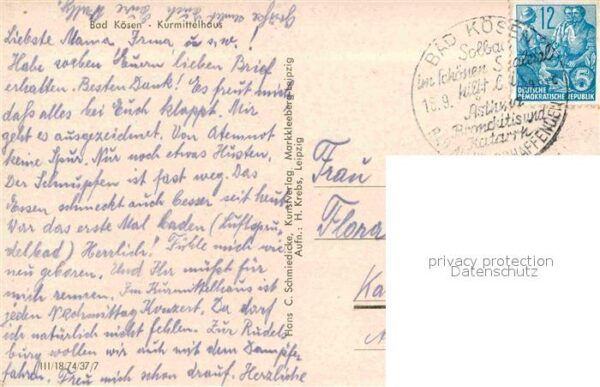 Grüße auch Eure
Bad Kösen - Kurmittelhaus
Liebste Mama, Irma u s, w.!
Habe soeben Euern lieben Brief
erhalten. Besten Dank! Es freut mich
daß alles bei Euch klappt. Mir
geht es ausgezeichnet. Von Atemnot
keine Spur. Nur noch etwas Husten.
Der Schnupfen ist fast weg. Das
Essen schmeckt auch besser seit heut.
War das erste Mal baden (Luftspru
delbad) Herrlich! Fühle mich wie
neu geboren. Und Ihr müßt für
mich rennen. Im Kurmittelhaus ist
jeden Nachmittag Konzert. Da darf
ich natürlich nicht fehlen. Zur Rudels
burg wollen wir auch mit dem Dampfer
fahren. Freu mich schon drauf. Herzliche
III/18/74/37/7
Hans C. Schmiedicke, Kunstverlag, Markkleeberg-Leipzig
Aufn.: H. Krebs, Leipzig
BAD KÖSEN
Solbad
im schönen Saaletal
hilft b.
18.9.
Asthma
Bronchitis und
Katarrh
12
DEUTSCHE
DEMOKRATISCHE REPUBLIK
5
Frau
Flora
Ka
privacy protection
Datenschutz